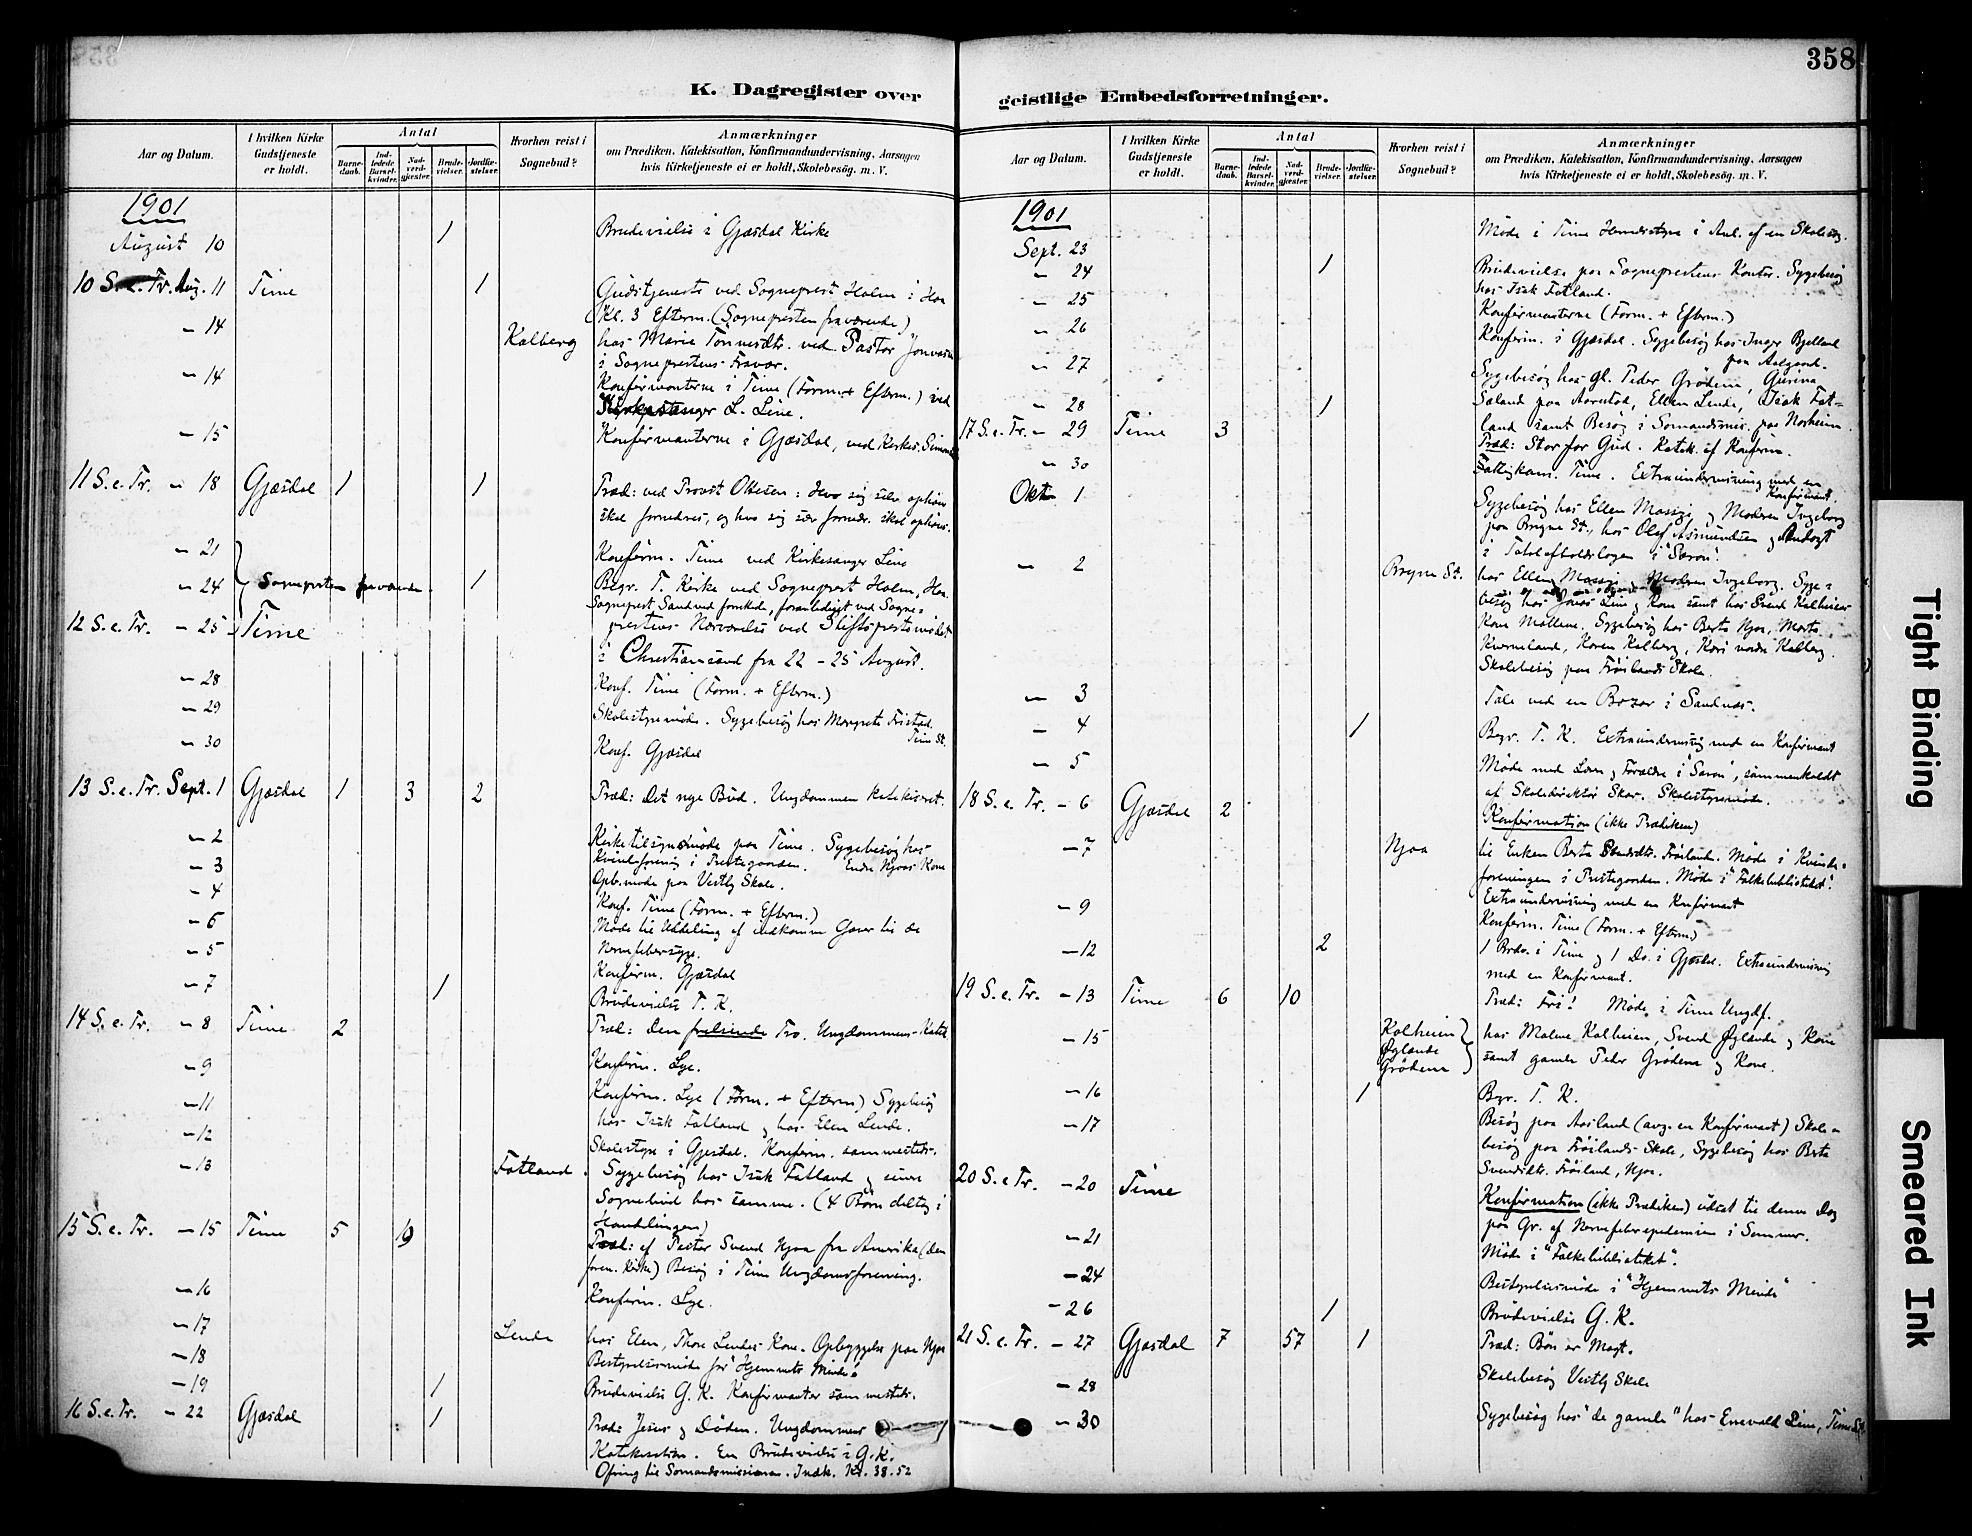 358
K. Dagregister over
Aar og Datum.
I hvilken Kirke Gudstjeneste er holdt.
Antal
Barne-daab.
Ind-ledede Barsel-kvinder.
Nad-verd-gjester.
Brude-vielser.
Jordfæ-stelser.
Hvorhen reist i Sognebud?
Anmærkninger
om Prædiken, Katekisation, Konfirmandundervisning, Aarsagen
hvis Kirketjeneste ei er holdt, Skolebesög. m. V.
1901
August 10 1 Brudevielse i Gjæsdal Kirke
10 S. e. Tr. Aug. 11 Time 1 Gudstjeneste ved Sogneprest Holm i Haa
Kl. 3 Efterm. (Sognepresten fraværende)
- 14 Kalberg hos Marie Tönnesdtr. ved Pastor
i Sogneprestens Fravær.
- 14 Konfirmanterne i Time (Form. + Efterm.) ved
Kirkesanger L. Line.
- 15 Konfirmanterne i Gjæsdal, ved Kirkes.
11 S. e. Tr. - 18 Gjæsdal 1 1 Præd: ved Provst Ottesen: Hvo sig selv ophöier
skal fornedres, og hvo sig selv fornedr. skal ophöies.
- 21 Konfirm. Time ved Kirkesanger Line
- 24 Sognepresten fraværende 1 Begr. T. Kirke ved Sogneprest Holm, Haa.
Sogneprest Sandved foranlediget ved Sogne-
12 S. e. Tr. - 25 Time prestens Nærværelse ved Stiftsprestemödet
i Christianssand fra 22 - 25 August.
- 28 Konf. Time (Form. + Efterm.)
- 29 Skolestyremöde. Sygebesög hos Margrete Fristad.
Time St.
- 30 Konf. Gjæsdal
13 S. e. Tr. Sept. 1 Gjæsdal 1 3 2 Præd: Det nye Bud. Ungdommen katekiseret.
- 2 Kirketilsynsmöde paa Time. Sygebesög hos
- 3 Kvindeforening i Prestegaarden. Endre Njaas Kone
- 4 Opb.möde paa Vestly Skole.
- 6 Konf. Time (Form. + Efterm.)
Möde til Uddeling af indkomne Gaver til de
- 5 Nervefebersyge.
Konfirm. Gjæsdal
- 7 1 Brudevielse T. K.
14 S. e. Tr. - 8 Time 2 Præd: Den frelsende Tro. Ungdommens-Katek.
- 9 Konfirm. Lye.
- 11 Konfirm. Lye (Form. + Efterm) Sygebesög
- 12 hos Isak Fatland og hos Elen Lende.
Skolestyre i Gjesdal. Konfirm. sammesteds.
- 13 Fatland. Sygebesög hos Isak Fatland og senere
Sognebud hos samme. (4 Börn deltog i
Handlingen)
15 S. e. Tr. - 15 Time 5 19 Præd: af Pastor Svend Njaa fra Amerika (den
foren. Kirke) Besög i Time Ungdomsforening.
- 16 Konfirm. Lye.
- 17 Lende hos Elen, Thore Lendes Kone. Opbyggelse paa Njaa
- 18 Bestyrelsesmöde for "Hjemmets Minde"
- 19 1 Brudevielse G. K. Konfirmanter sammesteds.
16 S. e. Tr. - 22 Gjæsdal 1 Præd: Jesus og Döden. Ungdommens
Katekisation. En Brudevielse i G. K.
Ofring til Sömandsmissionen. Indk. Kr. 38.52
geistlige Embedsforretninger.
Aar og Datum.
I hvilken Kirke Gudstjeneste er holdt.
Antal
Barne-daab.
Ind-ledede Barsel-kvinder.
Nad-verd-gjester.
Brude-vielser.
Jordfæ-stelser.
Hvorhen reist i Sognebud?
Anmærkninger
om Prædiken, Katekisation, Konfirmandundervisning, Aarsagen
hvis Kirketjeneste ei er holdt, Skolebesög. m. V.
1901
Sept. 23 Möde i Time Herredsstyre i Anl. af en Skolesag.
- 24 1 Brudevielse paa Sogneprestens Kontor. Sygebesög
hos Isak Fatland.
- 25 Konfirmanterne (Form. + Efterm.)
- 26 Konfirm. i Gjæsdal. Sygebesög hos Inger Bjelland
paa Aalgaard.
- 27 Sygebesög hos gl. Peder Grödem, Gurina
- 28 1 Saland paa Aarestad, Ellen Lende, Isak Fat-
land samt Besög i Sömandsmis. paa Norheim.
17 S. e. Tr. - 29 Time 3 Præd: Stor for Gud. Katek. af Konfirm.
- 30 Fattigkom. Time. Extraundervisning med en
Konfirmant.
Oktr. 1 Sygebesög hos Ellen Massige og Moderen Ingeborg
paa Bryne St., hos Olaf Asmundsen og Andagt
i Totalafholdslogen i "Saron".
- 2 Bryne St. hos Ellen Massige og Moderen Ingeborg. Syge-
besög hos Jonas Line og Kone samt hos Svend Kalheien
Kone Mallene. Sygebesög hos Berta Njaa, Marta
Kverneland, Karen Kalberg, Kari nordre Kalberg.
Skolebesög paa Fröilands Skole.
- 3 Tale ved en Bazar i Sandnæs.
- 4 1 Begr. T. K. Extraundervisning med en Konfirmant
- 5 Möde med Lærere og Forældre i "Saron", sammenkaldt
af Skoledirektör Skar. Skolestyremöde.
18 S. e. Tr. - 6 Gjæsdal 2 Konfirmation (ikke Prædiken)
- 7 Njaa til Enken Berta Svendsdtr. Fröiland. Möde i Kvinde-
foreningen i Prestegaarden. Möde i "Folkebibliotheket".
- 9 Extraundervisning med en Konfirmant
Konfirm. Time (Form. + Efterm.)
- 12 2 1 Brdv. i Time og 1 Do. i Gjæsdal. Extraundervisning
med en Konfirmant.
19 S. e. Tr. - 13 Time 6 10 Præd: Fri! Möde i Time Ungdf.
- 15 Kalheien Øglænde Grödem hos Malene Kalheien, Svend Øglænde og Kone
samt gamle Peder Grödem og Kone.
- 16 1 Begr. T. K.
- 17 Besög paa Aasland (ang. en Konfirmant) Skole-
besög paa Fröilands-Skole, Sygebesög hos Berta
Svendsdtr. Fröiland, Njaa.
20 S. e Tr. - 20 Time Konfirmation (ikke Prædiken) udsat til denne Dag
paa Gr. af Nervefeberepidemien i Sommer.
- 21 Möde i "Folkebibliotheket".
- 24 Bestyrelsesmöde i "Hjemmets Minde"
- 26 1 Brudevielse G. K.
21 S. e. Tr. - 27 Gjæsdal 7 57 1 Præd: Bön er Magt.
- 28 Skolebesög Vestly Skole
- 30 Sygebesög hos "de gamle" hos Enevald Line, Time St.
Tight Binding
Smeared Ink